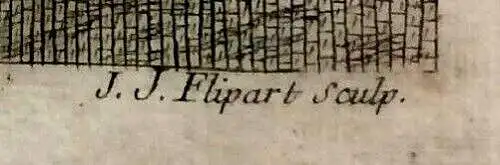 J. J. Flipart Sculp.